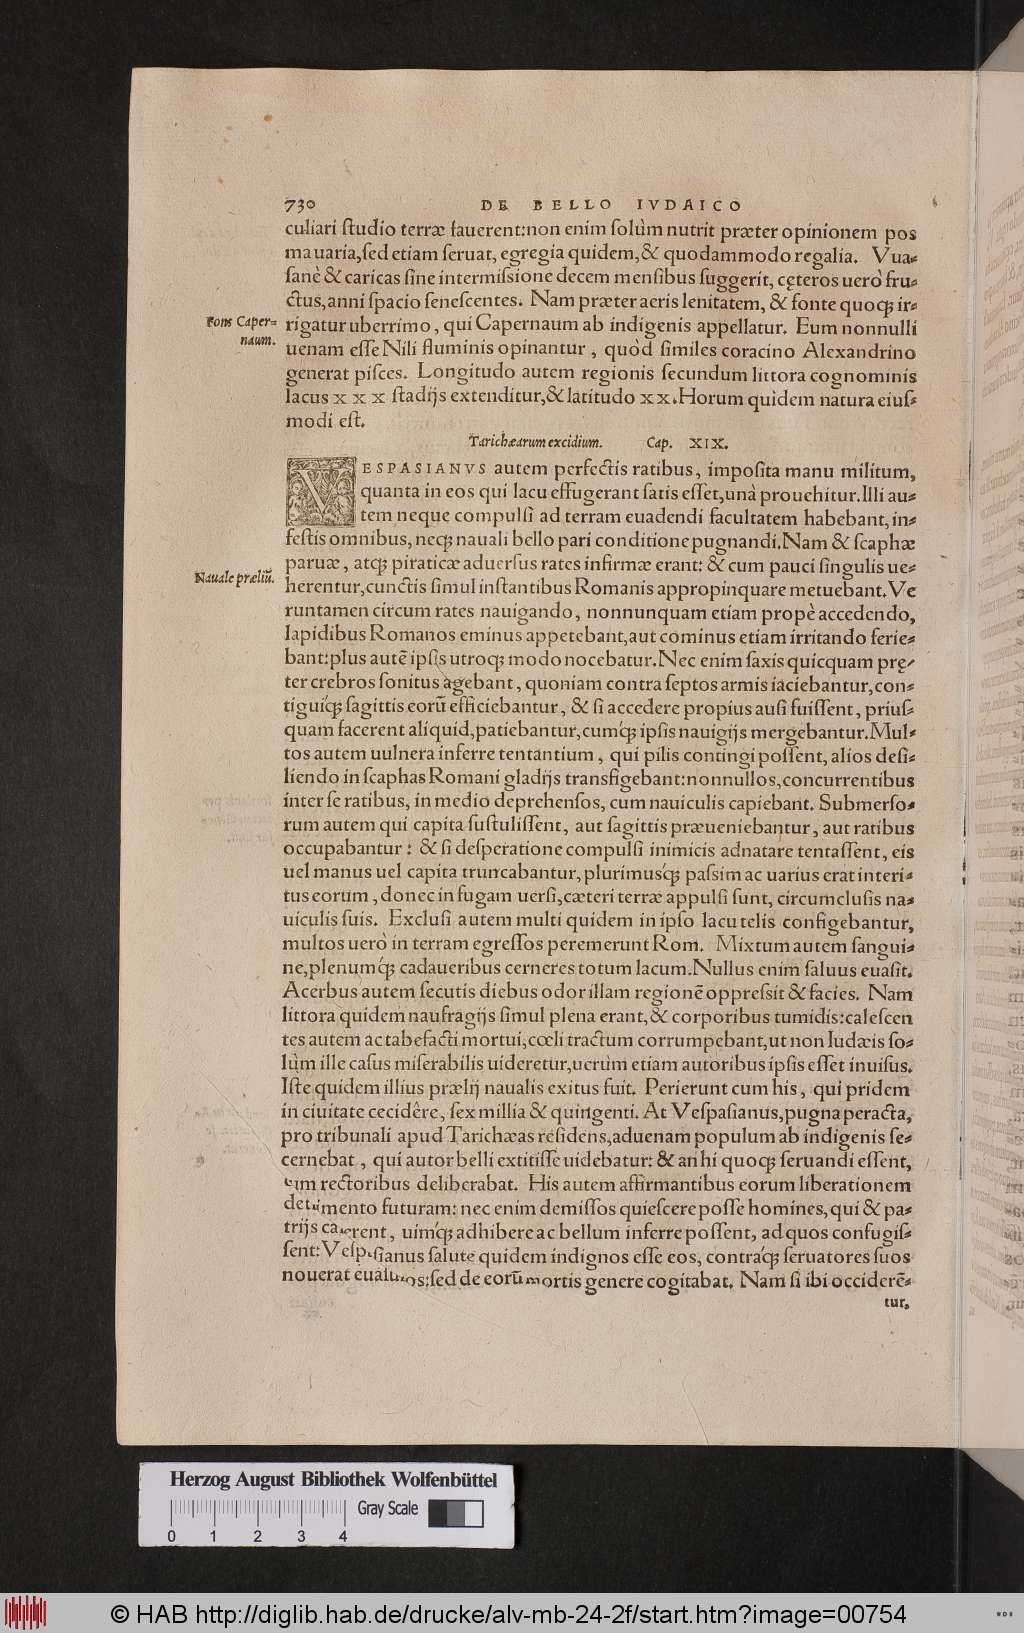 730 DE BELLO IVDAICO
culiari ſtudio terræ fauerent:non enim ſolùm nutrit præter opinionem pos
ma uaria,ſed etiam ſeruat, egregia quidem,& quodammodo regalia. Vua-
ſanè & caricas ſine intermiſsione decem menſibus ſuggerit, cęteros uerò fru-
ctus,anni ſpacio ſeneſcentes. Nam præter aeris lenitatem, & fonte quoq; ir-
Fons Caper-
naum.
rigatur uberrimo, qui Capernaum ab indigenis appellatur. Eum nonnulli
uenam eſſe Nili fluminis opinantur, quòd ſimiles coracino Alexandrino
generat piſces. Longitudo autem regionis ſecundum littora cognominis
lacus x x x ſtadijs extenditur,& latitudo x x. Horum quidem natura eiuſ-
modi eſt.
Tarichæarum excidium. Cap. XIX.
VESPASIANVS autem perfectis ratibus, impoſita manu militum,
quanta in eos qui lacu effugerant ſatis eſſet,unà prouehitur.Illi au-
tem neque compulſi ad terram euadendi facultatem habebant, in-
feſtis omnibus, neq; nauali bello pari conditione pugnandi.Nam & ſcaphæ
paruæ, atq; piraticæ aduerſus rates infirmæ erant: & cum pauci ſingulis ue-
Nauale præliũ.
herentur,cunctis ſimul inſtantibus Romanis appropinquare metuebant.Ve
runtamen circum rates nauigando, nonnunquam etiam propè accedendo,
lapidibus Romanos eminus appetebant,aut cominus etiam irritando ferie-
bant:plus autẽ ipſis utroq; modo nocebatur.Nec enim ſaxis quicquam prę-
ter crebros ſonitus agebant, quoniam contra ſeptos armis iaciebantur,con-
tiguiq́; ſagittis eorũ efficiebantur, & ſi accedere propius auſi fuiſſent, priuſ-
quam facerent aliquid,patiebantur,cumq́; ipſis nauigijs mergebantur.Mul-
tos autem uulnera inferre tentantium, qui pilis contingi poſſent, alios deſi-
liendo in ſcaphas Romani gladijs transfigebant:nonnullos,concurrentibus
inter ſe ratibus, in medio deprehenſos, cum nauiculis capiebant. Submerſo-
rum autem qui capita ſuſtuliſſent, aut ſagittis præueniebantur, aut ratibus
occupabantur: & ſi deſperatione compulſi inimicis adnatare tentaſſent, eis
uel manus uel capita truncabantur, plurimusq́; paſsim ac uarius erat interi-
tus eorum, donec in fugam uerſi,cæteri terræ appulſi ſunt, circumcluſis na-
uiculis ſuis. Excluſi autem multi quidem in ipſo lacu telis configebantur,
multos uerò in terram egreſſos peremerunt Rom. Mixtum autem ſangui-
ne,plenumq́; cadaueribus cerneres totum lacum.Nullus enim ſaluus euaſit.
Acerbus autem ſecutis diebus odor illam regionẽ oppreſsit & facies. Nam
littora quidem naufragijs ſimul plena erant,& corporibus tumidis:caleſcen
tes autem ac tabefacti mortui,cœli tractum corrumpebant,ut non Iudæis ſo-
lùm ille caſus miſerabilis uideretur,uerùm etiam autoribus ipſis eſſet inuiſus.
Iſte quidem illius prælij naualis exitus fuit. Perierunt cum his, qui pridem
in ciuitate cecidêre, ſex millia & quingenti. At Veſpaſianus,pugna peracta,
pro tribunali apud Tarichæas reſidens,aduenam populum ab indigenis ſe-
cernebat, qui autor belli extitiſſe uidebatur: & an hi quoq; ſeruandi eſſent,
cum rectoribus deliberabat. His autem affirmantibus eorum liberationem
detrimento futuram: nec enim demiſſos quieſcere poſſe homines, qui & pa-
trijs carerent, uimq́; adhibere ac bellum inferre poſſent, ad quos confugiſ-
ſent: Veſpaſianus ſalute quidem indignos eſſe eos, contraq́; ſeruatores ſuos
nouerat euaſuros:ſed de eorũ mortis genere cogitabat. Nam ſi ibi occiderẽ-
tur,
Herzog August Bibliothek Wolfenbüttel
Gray Scale
0 1 2 3 4
© HAB http://diglib.hab.de/drucke/alv-mb-24-2f/start.htm?image=00754